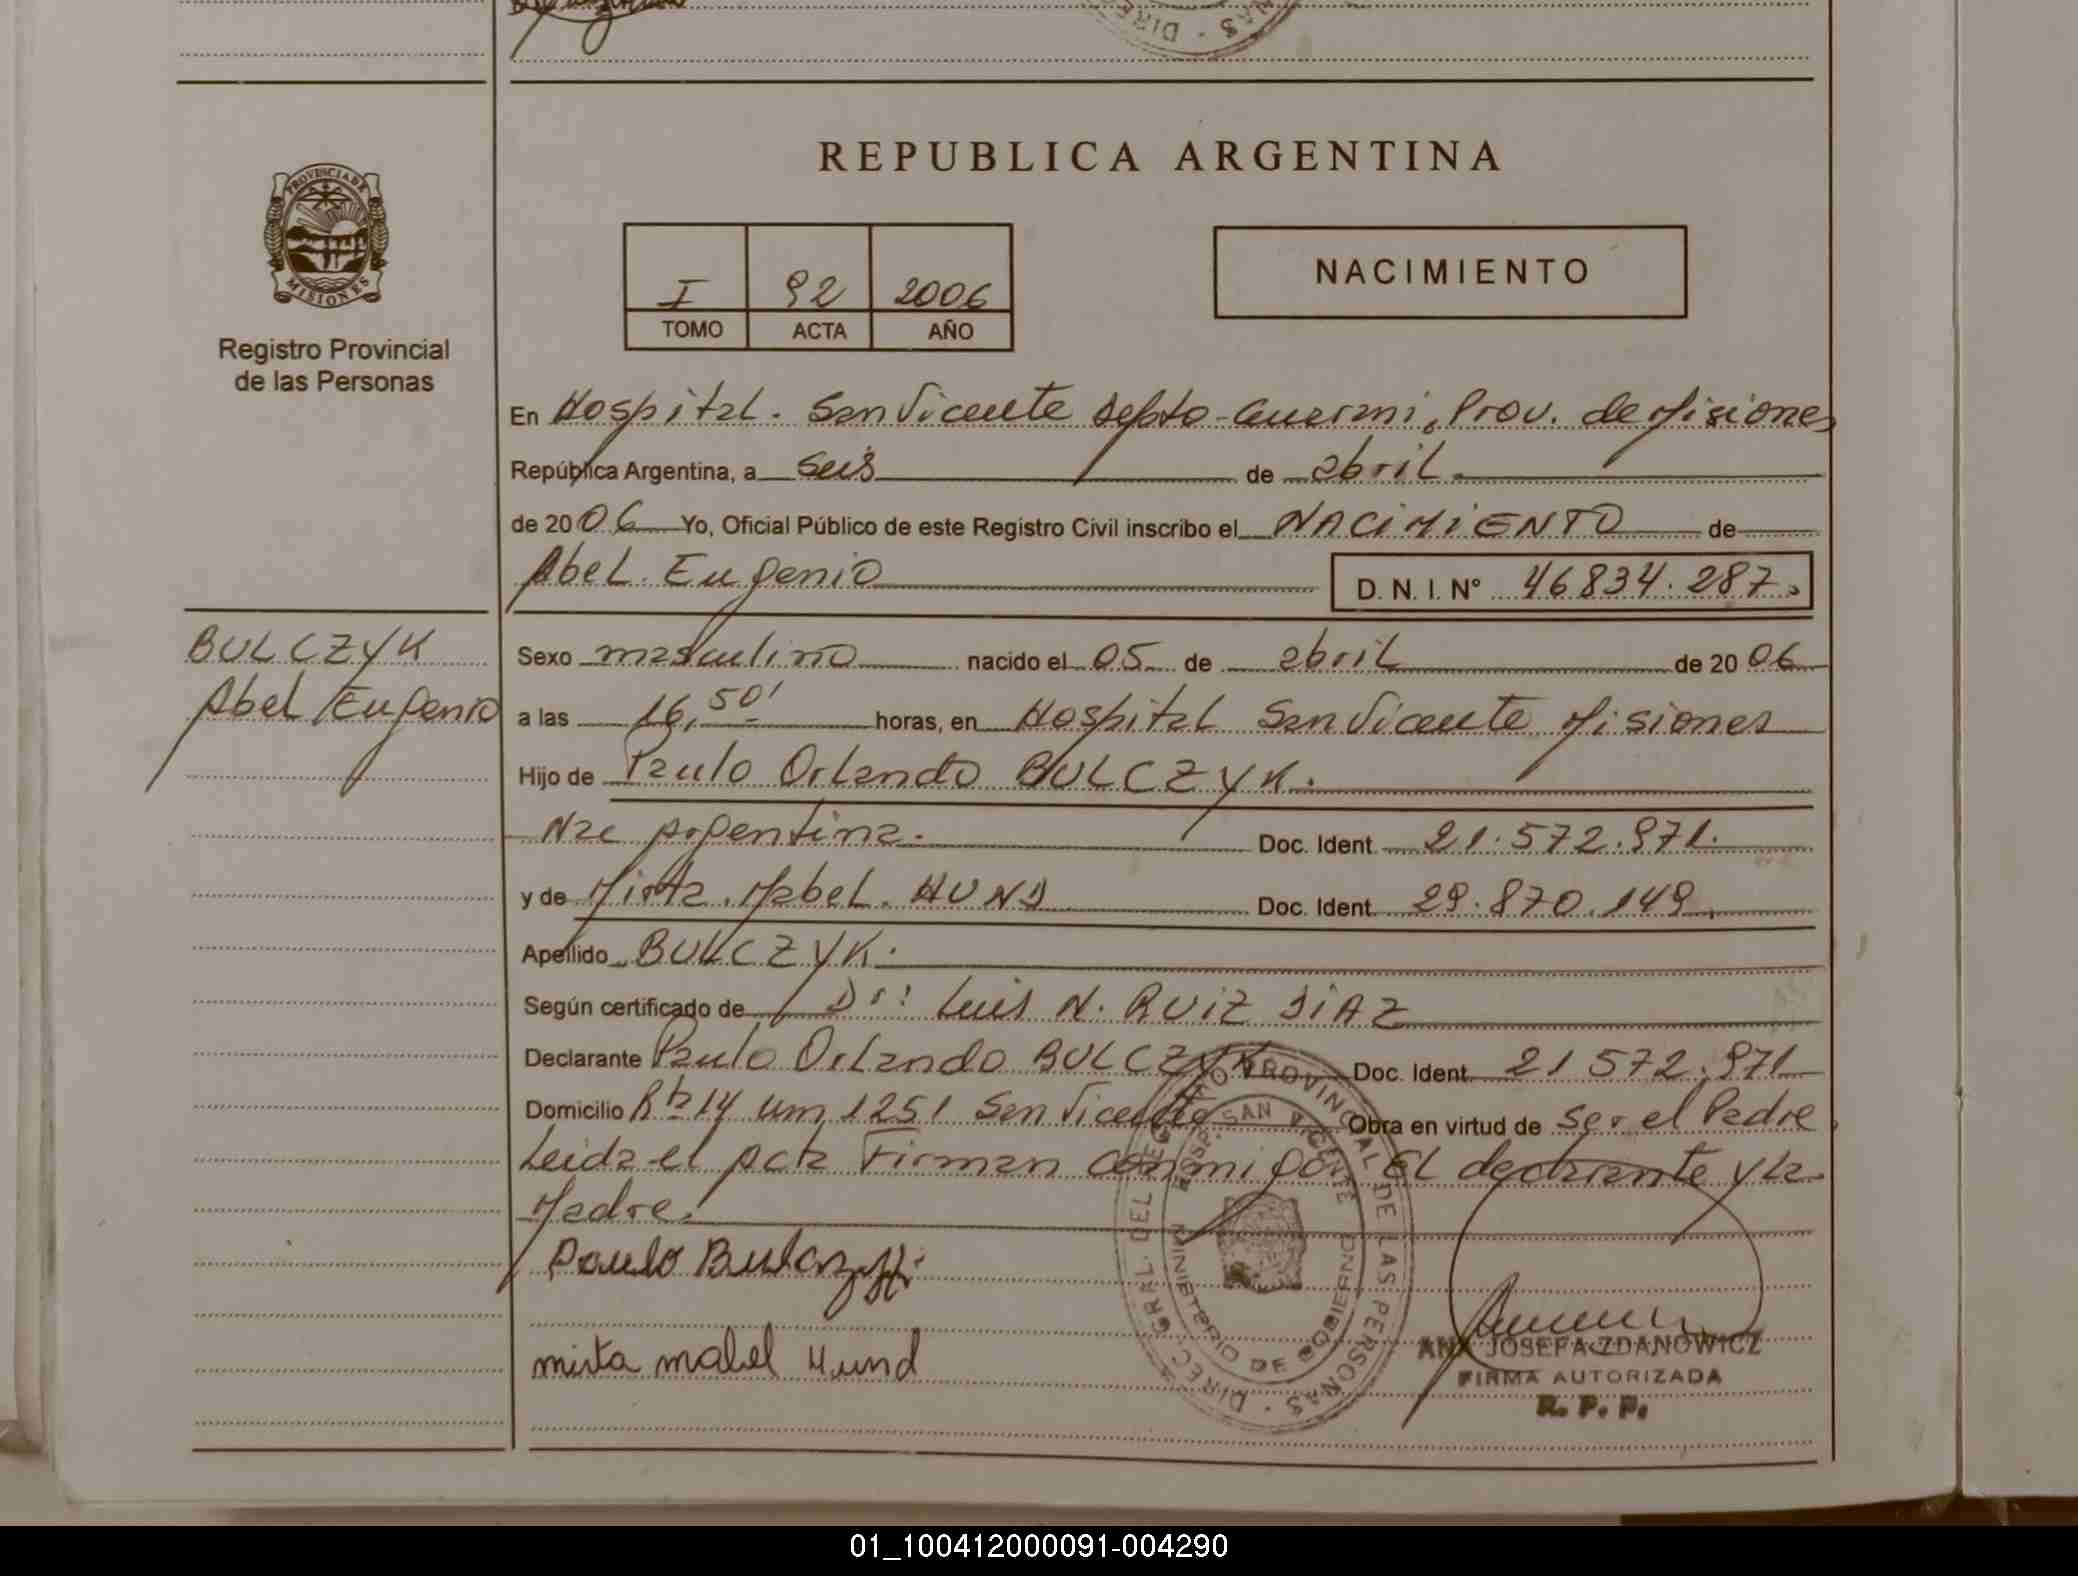 REPUBLICA ARGENTINA
PROVINCIA DE
MISIONES
Registro Provincial
de las Personas
I 92 2006
TOMO ACTA AÑO
NACIMIENTO
En Hospital. San Vicente Depto-Guarani, Prov. de Misiones
República Argentina, a seis de abril
de 2006 Yo, Oficial Público de este Registro Civil inscribo el NACIMIENTO de
Abel Eugenio D. N. I. N° 46834.287.
BULCZYK
Abel Eugenio
Sexo masculino nacido el 05 de abril de 2006
a las 16,50' horas, en Hospital San Vicente Misiones
Hijo de Paulo Orlando BULCZYK.
Nac Argentina. Doc. Ident 21.572.971.
y de Mirta Mabel. HUND Doc. Ident 29.870.149.
Apellido BULCZYK.
Según certificado de Dr: Luis N. RUIZ DIAZ
Declarante Paulo Orlando BULCZYK Doc. Ident. 21 572.971
Domicilio Rta 14 Km 1251 San Vicente Obra en virtud de ser el Padre
Leida el acta Firman conmigo El declarante y la
Madre.
Paulo Bulczyk
mirta mabel Hund
DIREC. GRAL. DEL REGISTRO PROVINCIAL DE LAS PERSONAS
HOSP. SAN VICENTE
MINISTERIO DE GOBIERNO
ANA JOSEFA ZDANOWICZ
FIRMA AUTORIZADA
R. P. P.
01_100412000091-004290